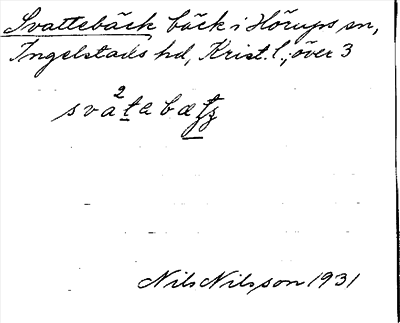 Svattebäck bäck i Hörups sn,
Ingelstads hd, Krist. l., över 3
2
svatabætz
Nils Nilsson 1931